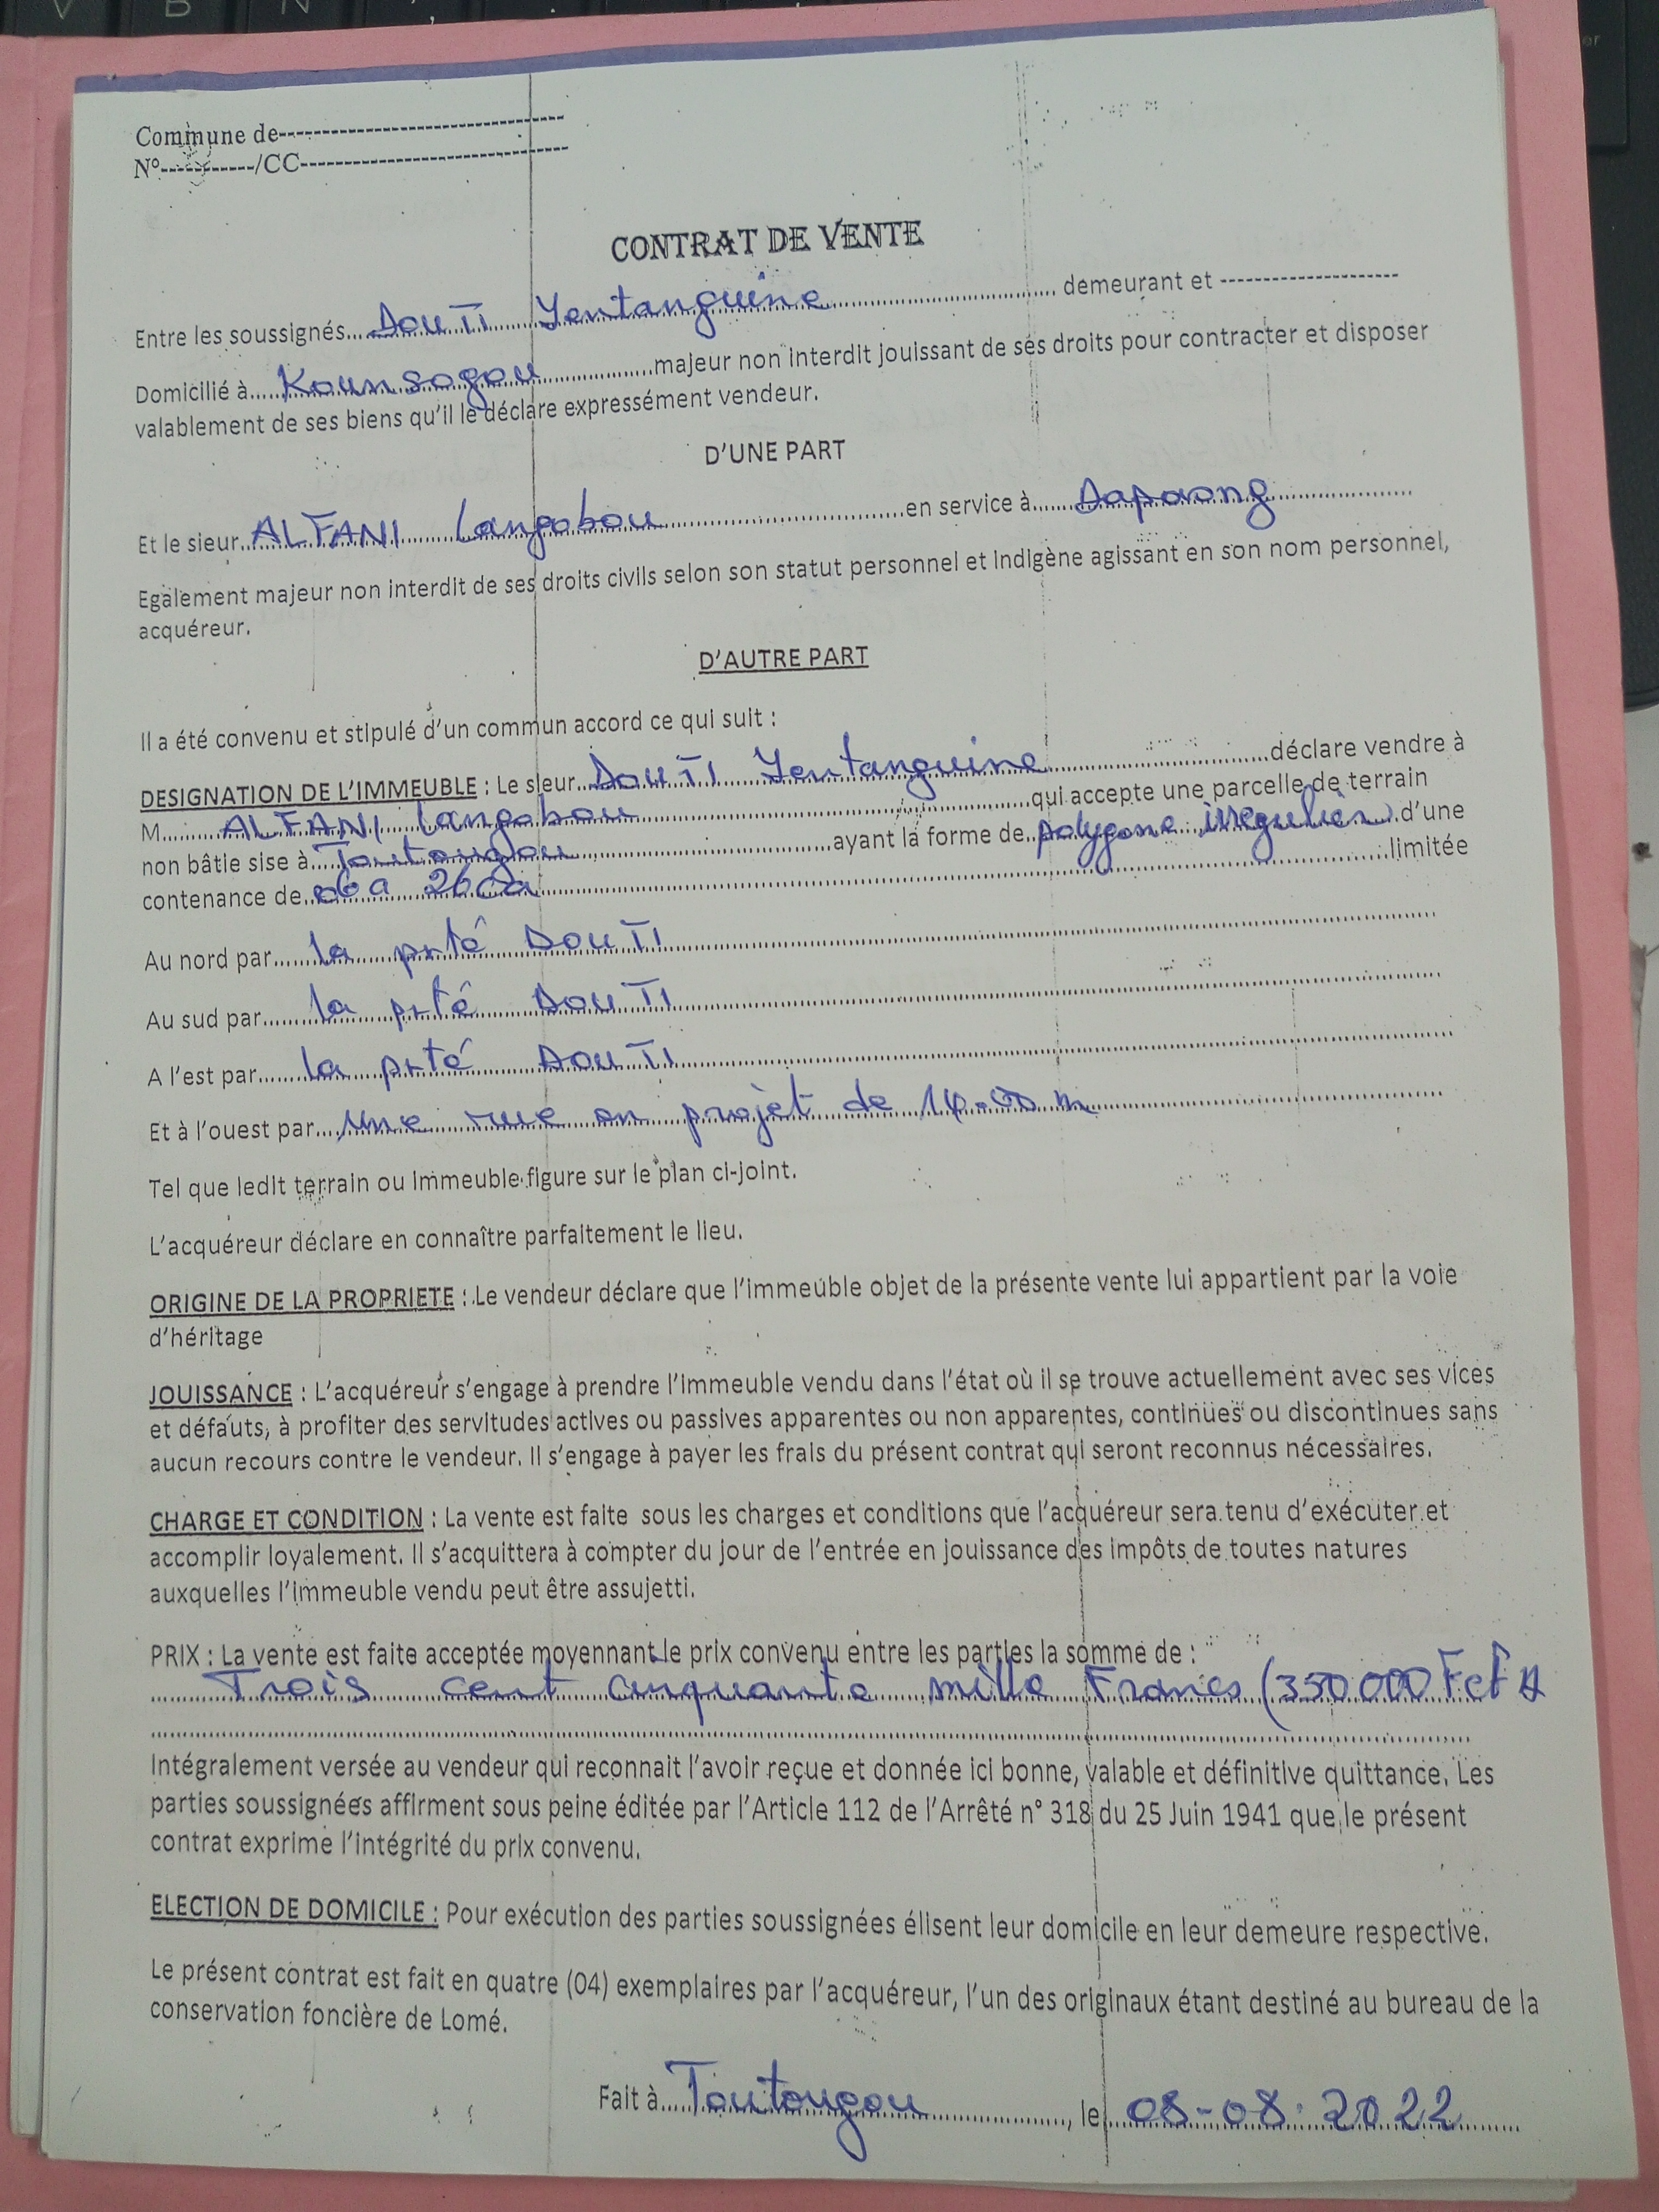 Commune de-------------------------------
N°-----------/CC-----------------------------
CONTRAT DE VENTE
Entre les soussignés... DOUTI Yentanguine ... demeurant et --------------------
Domicilié à..... Kounsogou ...majeur non interdit jouissant de ses droits pour contracter et disposer
valablement de ses biens qu'il le déclare expressément vendeur.
D'UNE PART
Et le sieur.. ALFANI Langobou ...en service à...... Dapaong ...
Egalement majeur non interdit de ses droits civils selon son statut personnel et indigène agissant en son nom personnel,
acquéreur.
D'AUTRE PART
Il a été convenu et stipulé d'un commun accord ce qui suit :
DESIGNATION DE L'IMMEUBLE : Le sieur.. DOUTI Yentanguine ...déclare vendre à
M......... ALFANI Langobou ...qui accepte une parcelle de terrain
non bâtie sise à... Toutougou ...ayant la forme de.. polygone irrégulier ..d'une
contenance de.. 06a 26ca ...limitée
Au nord par...... la prté DOUTI
Au sud par........ la prté DOUTI
A l'est par....... la prté DOUTI
Et à l'ouest par... une rue en projet de 14.00 m
Tel que ledit terrain ou immeuble figure sur le plan ci-joint.
L'acquéreur déclare en connaître parfaitement le lieu.
ORIGINE DE LA PROPRIETE : Le vendeur déclare que l'immeuble objet de la présente vente lui appartient par la voie
d'héritage
JOUISSANCE : L'acquéreur s'engage à prendre l'immeuble vendu dans l'état où il se trouve actuellement avec ses vices
et défauts, à profiter des servitudes actives ou passives apparentes ou non apparentes, continues ou discontinues sans
aucun recours contre le vendeur. Il s'engage à payer les frais du présent contrat qui seront reconnus nécessaires.
CHARGE ET CONDITION : La vente est faite sous les charges et conditions que l'acquéreur sera tenu d'exécuter et
accomplir loyalement. Il s'acquittera à compter du jour de l'entrée en jouissance des impôts de toutes natures
auxquelles l'immeuble vendu peut être assujetti.
PRIX : La vente est faite acceptée moyennant le prix convenu entre les parties la somme de :
Trois cent cinquante mille Francs (350 000 F cfA
Intégralement versée au vendeur qui reconnait l'avoir reçue et donnée ici bonne, valable et définitive quittance. Les
parties soussignées affirment sous peine éditée par l'Article 112 de l'Arrêté n° 318 du 25 Juin 1941 que le présent
contrat exprime l'intégrité du prix convenu.
ELECTION DE DOMICILE : Pour exécution des parties soussignées élisent leur domicile en leur demeure respective.
Le présent contrat est fait en quatre (04) exemplaires par l'acquéreur, l'un des originaux étant destiné au bureau de la
conservation foncière de Lomé.
Fait à.... Toutougou ..., le 08-08-2022